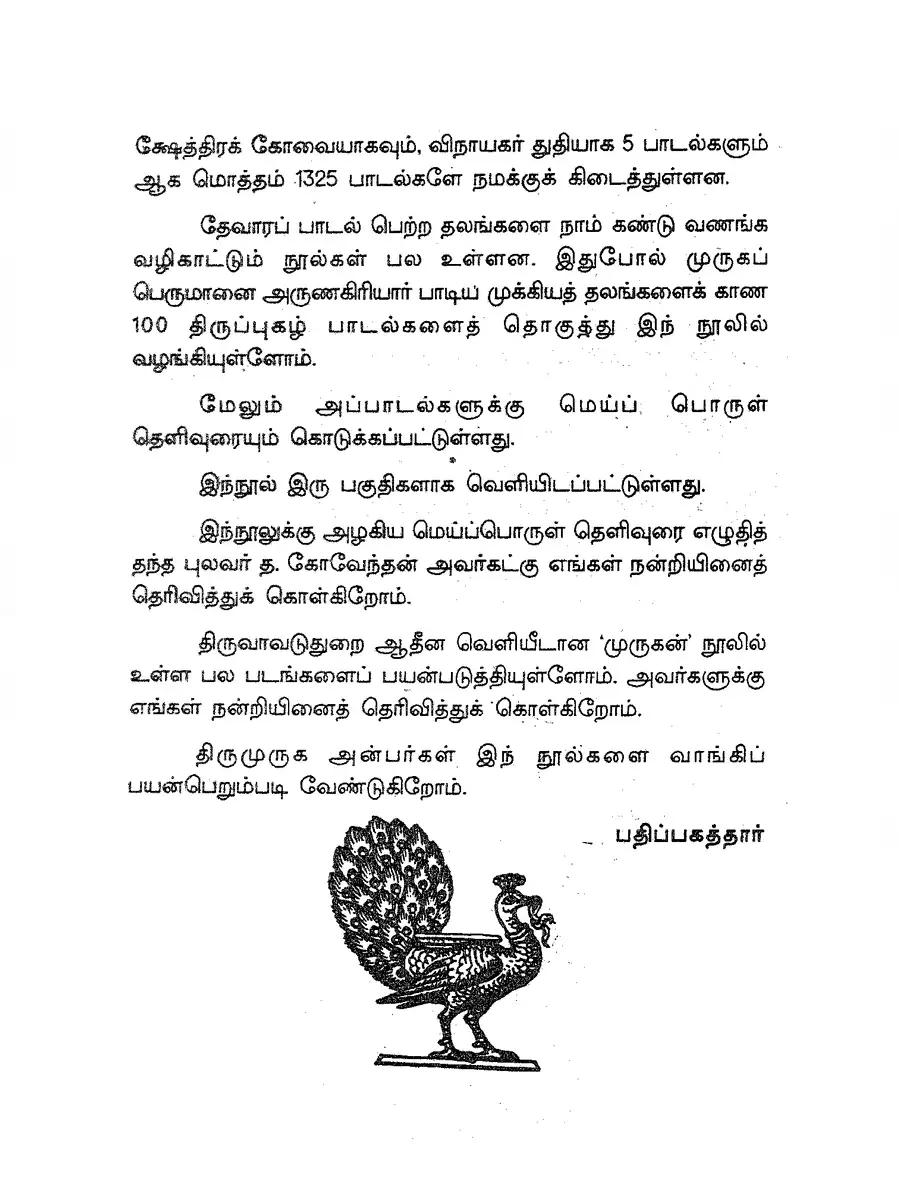 க்ஷேத்திரக் கோவையாகவும், விநாயகர் துதியாக 5 பாடல்களும்
ஆக மொத்தம் 1325 பாடல்களே நமக்குக் கிடைத்துள்ளன.
தேவாரப் பாடல் பெற்ற தலங்களை நாம் கண்டு வணங்க
வழிகாட்டும் நூல்கள் பல உள்ளன. இதுபோல் முருகப்
பெருமானை அருணகிரியார் பாடிய முக்கியத் தலங்களைக் காண
100 திருப்புகழ் பாடல்களைத் தொகுத்து இந் நூலில்
வழங்கியுள்ளோம்.
மேலும் அப்பாடல்களுக்கு மெய்ப் பொருள்
தெளிவுரையும் கொடுக்கப்பட்டுள்ளது.
இந்நூல் இரு பகுதிகளாக வெளியிடப்பட்டுள்ளது.
இந்நூலுக்கு அழகிய மெய்ப்பொருள் தெளிவுரை எழுதித்
தந்த புலவர் த. கோவேந்தன் அவர்கட்கு எங்கள் நன்றியினைத்
தெரிவித்துக் கொள்கிறோம்.
திருவாவடுதுறை ஆதீன வெளியீடான ‘முருகன்’ நூலில்
உள்ள பல படங்களைப் பயன்படுத்தியுள்ளோம். அவர்களுக்கு
எங்கள் நன்றியினைத் தெரிவித்துக் கொள்கிறோம்.
திருமுருக அன்பர்கள் இந் நூல்களை வாங்கிப்
பயன்பெறும்படி வேண்டுகிறோம்.
பதிப்பகத்தார்